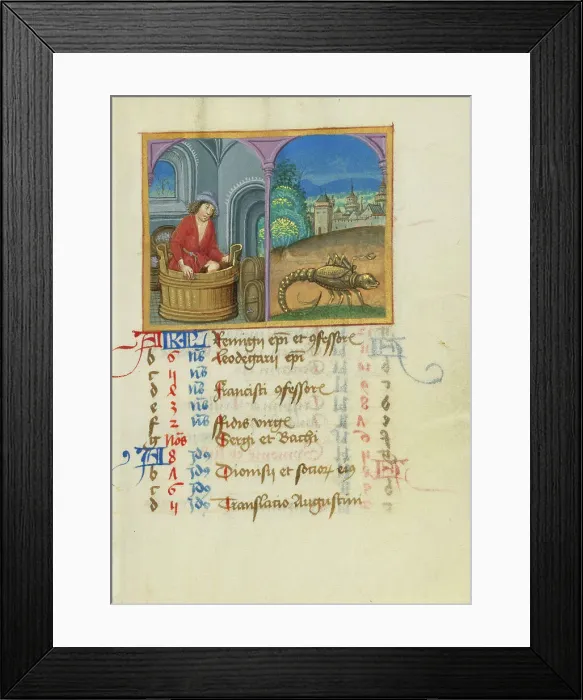 A KL Remigii epi et ꝯfessore
b 6 ns leodegarii epi
c 5 ns
d 4 ns Francisci ꝯfessore
e 3 ns
f 2 ns ffidis virge
g nos Sergi et Bachi
A 8 ydo
b 7 ydo Dionisii et socior eiꝰ
c 6 ydo
d 5 ydo Translacio Augustini